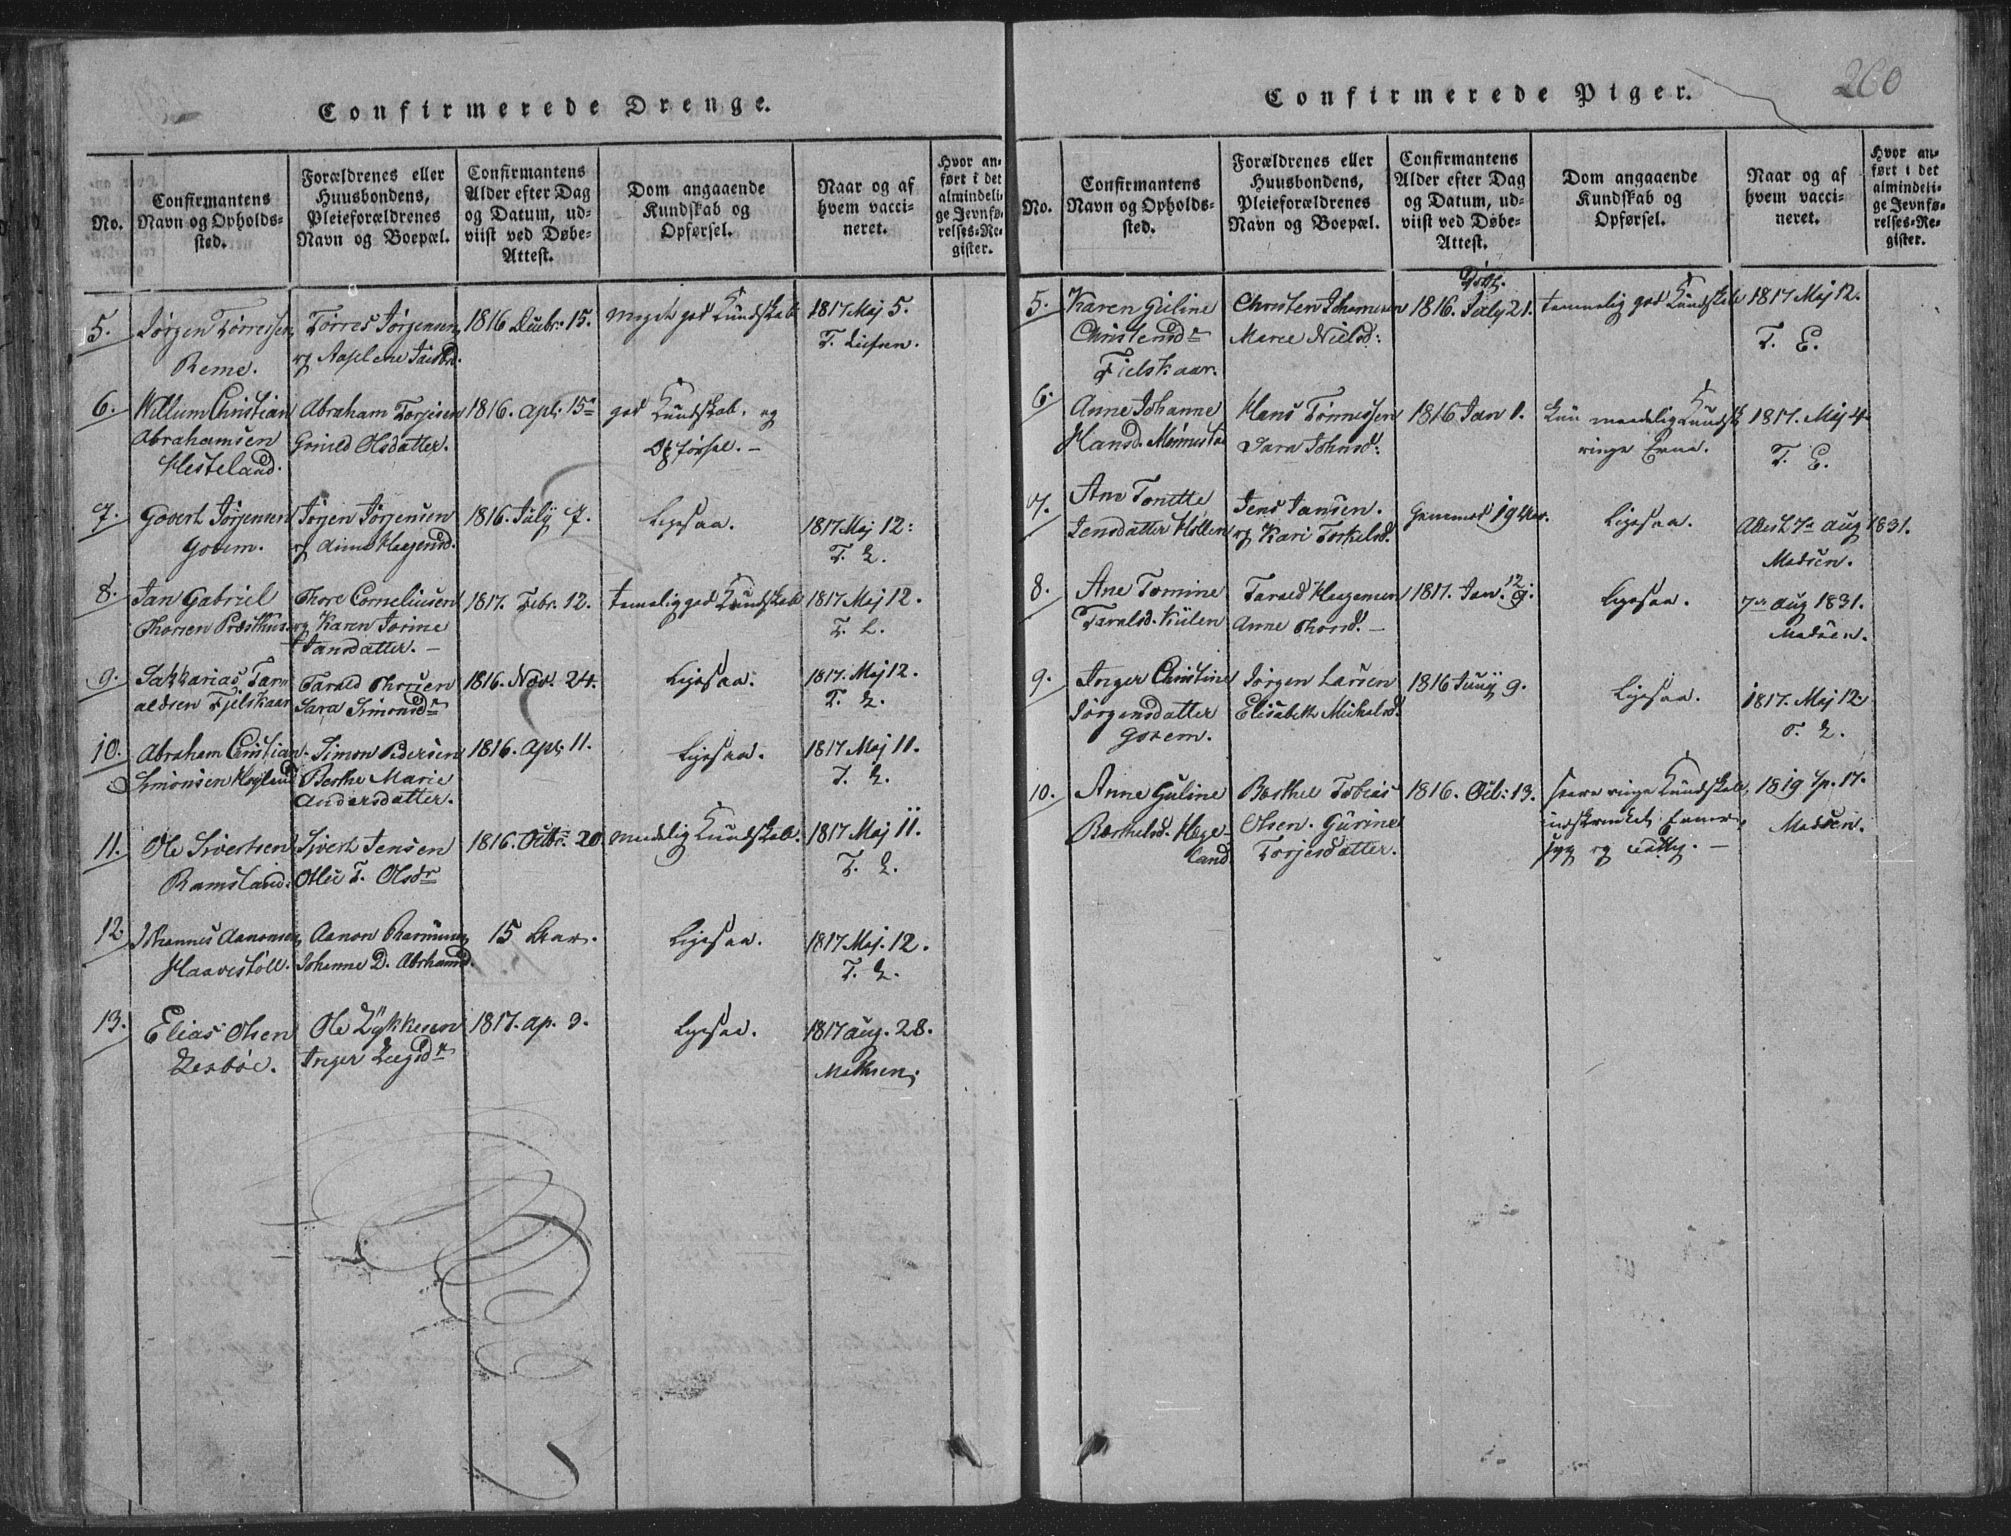 Confirmerede Drenge.
No.
Confirmantens
Navn og Opholds-
sted.
Forældrenes eller
Huusbondens,
Pleieforældrenes
Navn og Boepæl.
Confirmantens
Alder efter Dag
og Datum, ud-
viist ved Døbe-
Attest.
Dom angaaende
Kundskab og
Opførsel.
Naar og af
hvem vacci-
neret.
Hvor an-
ført i det
almindeli-
ge Jevnfø-
relses-Re-
gister.
5.
Jørgen Tørresen
Reme.
Tørres Jørgensen
og Aaslene Jacobd.
1816 Decbr. 15.
meget god Kundskab
1817 Maj 5.
6.
Willum Christian
Abrahamsen
Hesteland.
Abraham Torjesen
Gunild Olsdatter.
1816. apl. 15
god Kundskab. og
Opførsel. –
7.
Govert Jørgensen
Goven.
Jørgen Jørgensen
og Anne Haagensd.
1816. July 7.
Ligesaa.
1817 Maj 12:
T. E.
8.
Jan Gabriel
Thorsen Præsthus
Thore Corneliusen
og Karen Jorine
Jansdatter. –
1817. Febr. 12.
temelig god Kundskab
1817 Maj 12.
T. E.
9.
Sakkarias Tar
aldsen Fjelskaar
Tarald Thorsen
Sara Simonsdr
1816. Nov. 24.
Ligesaa.
1817. Maj 12.
T. E.
10.
Abraham Christian
Simonsen Høyland
Simon Pedersen
Berthe Marie
Andersdatter.
1816. Apl. 11.
Ligesaa.
1817 Maj 11.
T. E.
11.
Ole Sivertsen
Ramsland.
Sivert Jensen
T. Olsdr
1816. Octbr. 20.
maadelig Kundskab.
1817 Maj 11.
T. E.
12.
Johannes Aanonsen
Haavestøll.
Aanon
Johanne D. Abrahamsd.
15 Aar.
Ligesaa.
1817 Maj. 12.
T. E.
13.
Elias Olsen
Ole Lykkesen
Inger
1817. ap. 9.
Ligesaa.
1817 aug. 28.
Mathsen.
260
Confirmerede Piger.
No.
Confirmantens
Navn og Opholds-
sted.
Forældrenes eller
Huusbondens,
Pleieforældrenes
Navn og Boepæl.
Confirmantens
Alder efter Dag
og Datum, ud-
viist ved Døbe-
Attest.
Dom angaaende
Kundskab og
Opførsel.
Naar og af
hvem vacci-
neret.
Hvor an-
ført i det
almindeli-
ge Jevnfø-
relses-Re-
gister.
5.
Karen Guline
Christensdr
Fielskaar.
Christen Johannesen
Maree Nielsd:
Døbt.
1816. July 21.
temmelig god Kundskab
1817 Maj 12.
T. E.
6.
Anne Johanne
Hansd.
Hans Tønnessen
Sara Johnsd:
1816 Jan 1.
Kun maadelig Kundsk
ringe Evne.
1817. Maj 4
T. E.
7.
Ane Tonette
Jensdatter Hollen
Jens Jansen.
og Kari Torkelsd.
Gammel 19 Aar.
Ligesaa.
Attest 7de aug 1831.
Madsen.
8.
Ane Tomine
Taralsd. Kulen
Tarald Haagensen
Anne Thorsd. –
1817. Jan. 12
Ligesaa.
7de aug 1831.
Madsen.
9.
Inger Christine
Jørgensdatter
Goven.
Jørgen Larsen
Elisabeth Michelsd.
1816 Juny 9.
Ligesaa.
1817. Maj 12
T. E.
10.
Anne Guline
Barthelsd. Hege-
land
Barthel Tobias
Olsen. Gurine
Torjesdatter.
1816. Oct: 13.
saare ringe Kundskab,
indskrenket Evner,
syg og
1819 Sp. 17.
Madsen.